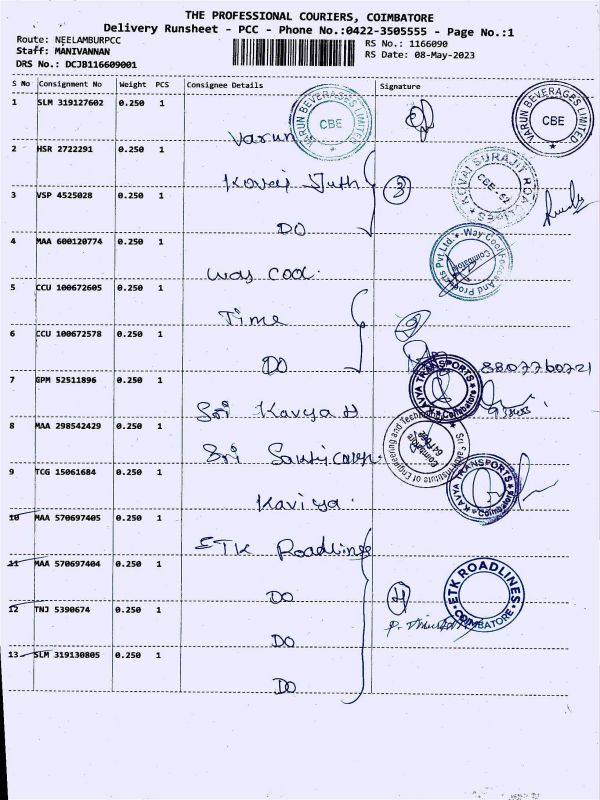 THE PROFESSIONAL COURIERS, COIMBATORE
Delivery Runsheet - PCC - Phone No.:0422-3505555 - Page No.:1
Route: NEELAMBURPCC
RS No.: 1166090
Staff: MANIVANNAN
RS Date: 08-May-2023
DRS No.: DCJB116609001
S No Consignment No Weight PCS Consignee Details Signature
1 SLM 319127602 0.250 1
Varun
VARUN BEVERAGES LIMITED CBE
VARUN BEVERAGES LIMITED CBE
2 HSR 2722291 0.250 1
Kovai
2
KOVAI SURAJIT ROADLINES CBE - 62
3 VSP 4525028 0.250 1
DO
4 MAA 600120774 0.250 1
way cool
Way Cool Foods And Products Pvt.Ltd. Coimbatore
5 CCU 100672605 0.250 1
Time
2
6 CCU 100672578 0.250 1
DO
8807760721
7 GPM 52511896 0.250 1
Sri Kavya
KAVYA TRANSPORTS Coimbatore
8 MAA 298542429 0.250 1
Sri
Institute of Engineering and Technology Coimbatore
9 TCG 15061684 0.250 1
Kaviya
KAVYA TRANSPORTS Coimbatore
10 MAA 570697405 0.250 1
ETK Roadlines
11 MAA 570697404 0.250 1
DO
4
ETK ROADLINES COIMBATORE
12 TNJ 5390674 0.250 1
DO
13 SLM 319130805 0.250 1
DO